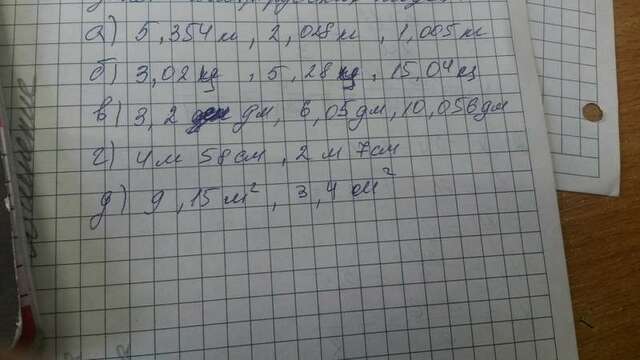 а) 5,354 м, 2,028 м, 1,005 м
б) 3,02 ц, 5,28 ц, 15,04 ц
в) 3,2 дм, 6,05 дм, 10,056 дм
г) 4 м 58 см, 2 м 7 см
д) 9,15 м², 3,4 м²